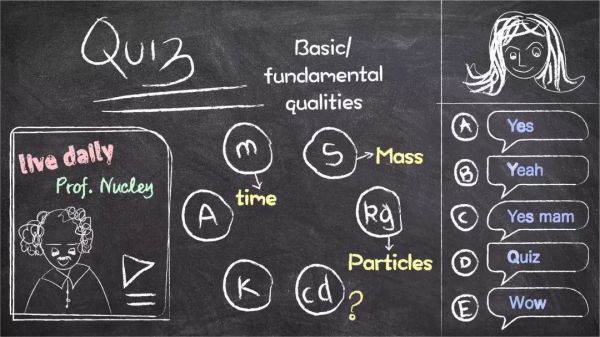 Quiz
Basic/
fundamental
qualities
live daily
Prof. Nucley
m
time
S
Mass
A
kg
Particles
K
cd
?
A Yes
B Yeah
C Yes mam
D Quiz
E Wow